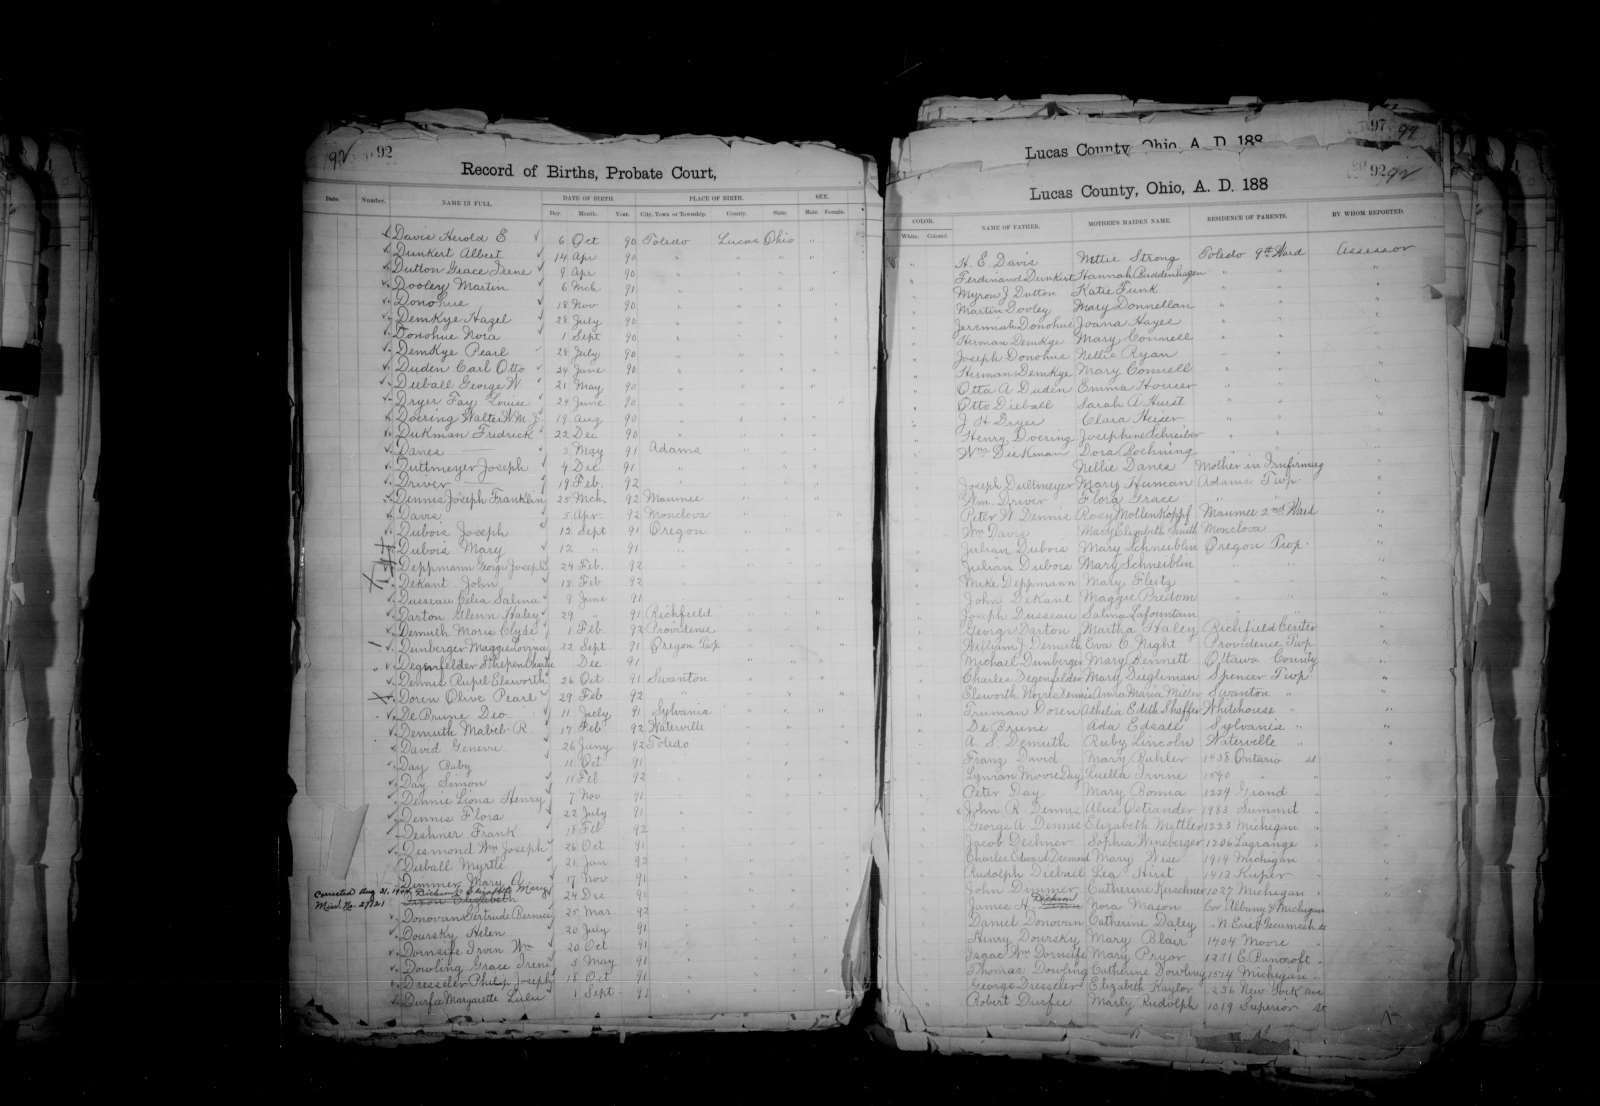 92 92
Record of Births, Probate Court,
Date. Number. NAME IN FULL. DATE OF BIRTH. PLACE OF BIRTH. SEX.
Day. Month. Year. City, Town or Township. County. State. Male. Female.
Davis Herold E 6 Oct 90 Toledo Lucas Ohio "
Dunkert Albert 14 Apr 90 " " " "
Dutton Grace Irene 9 Apr 90 " " "
Dooley Martin 6 Mch 91 " " " "
Donohue 18 Nov 90 " " "
DemKye Hazel 28 July 90 " " " "
Donohue Nora 1 Sept 90 " " " "
DemKye Pearl 28 July 90 " " " "
Duden Carl Otto 24 June 90 " " " "
Dieball George W 21 May 90 " " " "
Dryer Fay Louise 24 June 90 " " " "
Doering Walter Wm 19 Aug 90 " " " "
Dukman Fredrick 22 Dec 90 " " " "
Danes May 91 Adams " "
Duttmeyer Joseph 4 Dec 91 " " " "
Driver 19 Feb. 92 " " "
Dennis Joseph Franklin 25 Mch. 92 Maumee " " "
Davis 5 Apr. 92 Monclova " "
Dubois Joseph 12 Sept 91 Oregon " " "
Dubois Mary 12 " 91 " " " "
Deppmann George Joseph 24 Feb. 92 " " "
DeKant John 18 Feb 92 " " "
Dusseau Celia Salina 9 June 91 " " " "
Darton Glenn Haley 29 91 Richfield " " "
Demuth Morris Clyde 1 Feb. 92 Providence " " "
Dunberger Maggie 22 Sept 91 Oregon Twp " "
Degenfelder Stephen Dec 91 " "
Dennis Rupil Elsworth 26 Oct 91 Swanton " " "
Doren Olive Pearl 29 Feb 92 " " " "
De Brune Deo 11 July 91 Sylvania " " "
Demuth Mabel R. 17 Feb 92 Waterville " "
David Geneve 26 Jany 92 Toledo " "
Day Ruby 11 Oct 91 " " "
Day Simon 11 Feb 92 " " "
Dennis Liona Henry 7 Nov 91 " " "
Dennis Flora 22 July 91 " " "
Deshner Frank 18 Feb 92 " " "
Desmond Wm Joseph 26 Oct 91 " " "
Dieball Myrtle 21 Jan 92 " " "
Dimmer Mary A 17 Nov 91 " " "
Corrected Aug 31, 1904 Dickson Elizabeth Mary 24 Dec 91 " " "
Misd. No. 27121 Dixon Elizabeth
Donovan Gertrude Bernice 25 Mar 92 " " "
Doursky Helen 20 July 91 " " "
Dornsife Irvin Wm 20 Oct 91 " " "
Dowling Grace Irene 3 May 91 " " "
Dresseler Philip Joseph 18 Oct 91 " " "
Durfee Margarette Lulu 1 Sept 91 " " "
97 97
Lucas County, Ohio, A. D. 188
92 92
Lucas County, Ohio, A. D. 188
COLOR. NAME OF FATHER. MOTHER'S MAIDEN NAME. RESIDENCE OF PARENTS. BY WHOM REPORTED.
White. Colored.
" H. E. Davis Nettie Strong Toledo 9th Ward Assessor
" Ferdinand Dunkert Hannah Buddenhagen " " "
" Myron J Dutton Katie Funk " " "
" Martin Dooley Mary Donnellan " " "
" Jeremiah Donohue Joana Hayes " " "
" Herman DemKye Mary Connell " " "
" Joseph Donohue Nellie Ryan " " "
" Herman DemKye Mary Connell " " "
" Otto A Duden Emma Houser " " "
" Otto Dieball Sarah A Hurst " " "
" J H Dryer Clara Heiser " " "
" Henry Doering Josephine Schreiber " " "
" Wm DieKman Dora Roehning " " "
Nellie Danes Mother in Infirmary "
Joseph Duttmeyer Mary Human Adams Twp. "
Wm. Driver Flora Grace " " "
Peter W Dennis Rosy Mollenkopf Maumee 2nd Ward "
Wm Davis Mary Elizabeth Smith Monclova "
Julian Dubois Mary Schneiblin Oregon Twp. "
Julian Dubois Mary Schneiblin " " "
Mike Deppmann Mary Fleitz " " "
John DeKant Maggie Bredom " " "
Joseph Dusseau Salina Lafountain " " "
George Darton Martha Haley Richfield Center "
William J Demuth Eva C. Night Providence Twp "
Michael Dunberger Mary Bennett Ottawa County "
Charles Degenfelder Mary Diegliman Spencer Twp. "
Elsworth Norris Dennis Anna Maria Miller Swanton " "
Truman Doren Athelia Edith Shaffer Whitehouse " "
De Brune Ada Edsall Sylvania " "
A. S. Demuth Ruby Lincoln Waterville " "
Franz David Mary Kuhler 1438 Ontario st "
Lyman Moore Day Luella Irvine 1590 " "
Peter Day Mary Bonna 1224 Grand " "
John R. Dennis Alice Ostrander 1983 Summit " "
George A Dennis Elizabeth Mettler 1223 Michigan " "
Jacob Dechner Sophia Wineberger 1206 Lagrange " "
Charles Edward Desmond Mary Wise 1914 Michigan " "
Rudolph Diebel Lea Hirst 1412 Kuper " "
John Dimmer Catherine Kirschner 1027 Michigan " "
James H Dickson Nora Mason Cor Albany & Michigan "
Daniel Donovan Catherine Daley N. Erie & Tecumseh st "
Henry Doursky Mary Blair 1404 Moore " "
Isaac Wm Dornsife Mary Pryor 1211 E Bancroft " "
Thomas Dowling Catherine Dowling 1574 Michigan " "
George Dresseler Elizabeth Kaylor 236 New York Ave "
Robert Durfee Marly Rudolph 1019 Superior St "